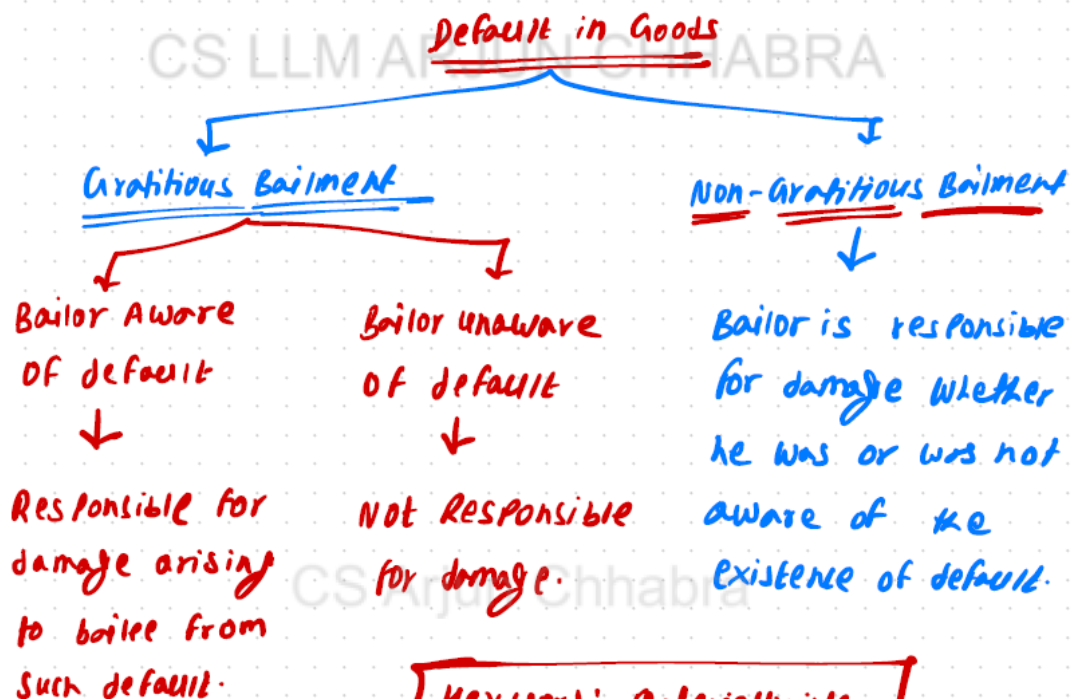 CS LLM ARJUN CHHABRA
Default in Goods
Gratitious Bailment
Non-Gratitious Bailment
Bailor Aware
of default
Responsible for
damage arising
to bailee from
such default.
Bailor unaware
of default
Not Responsible
for damage.
Bailor is responsible
for damage whether
he was or was not
aware of the
existence of default.
CS Arjun Chhabra